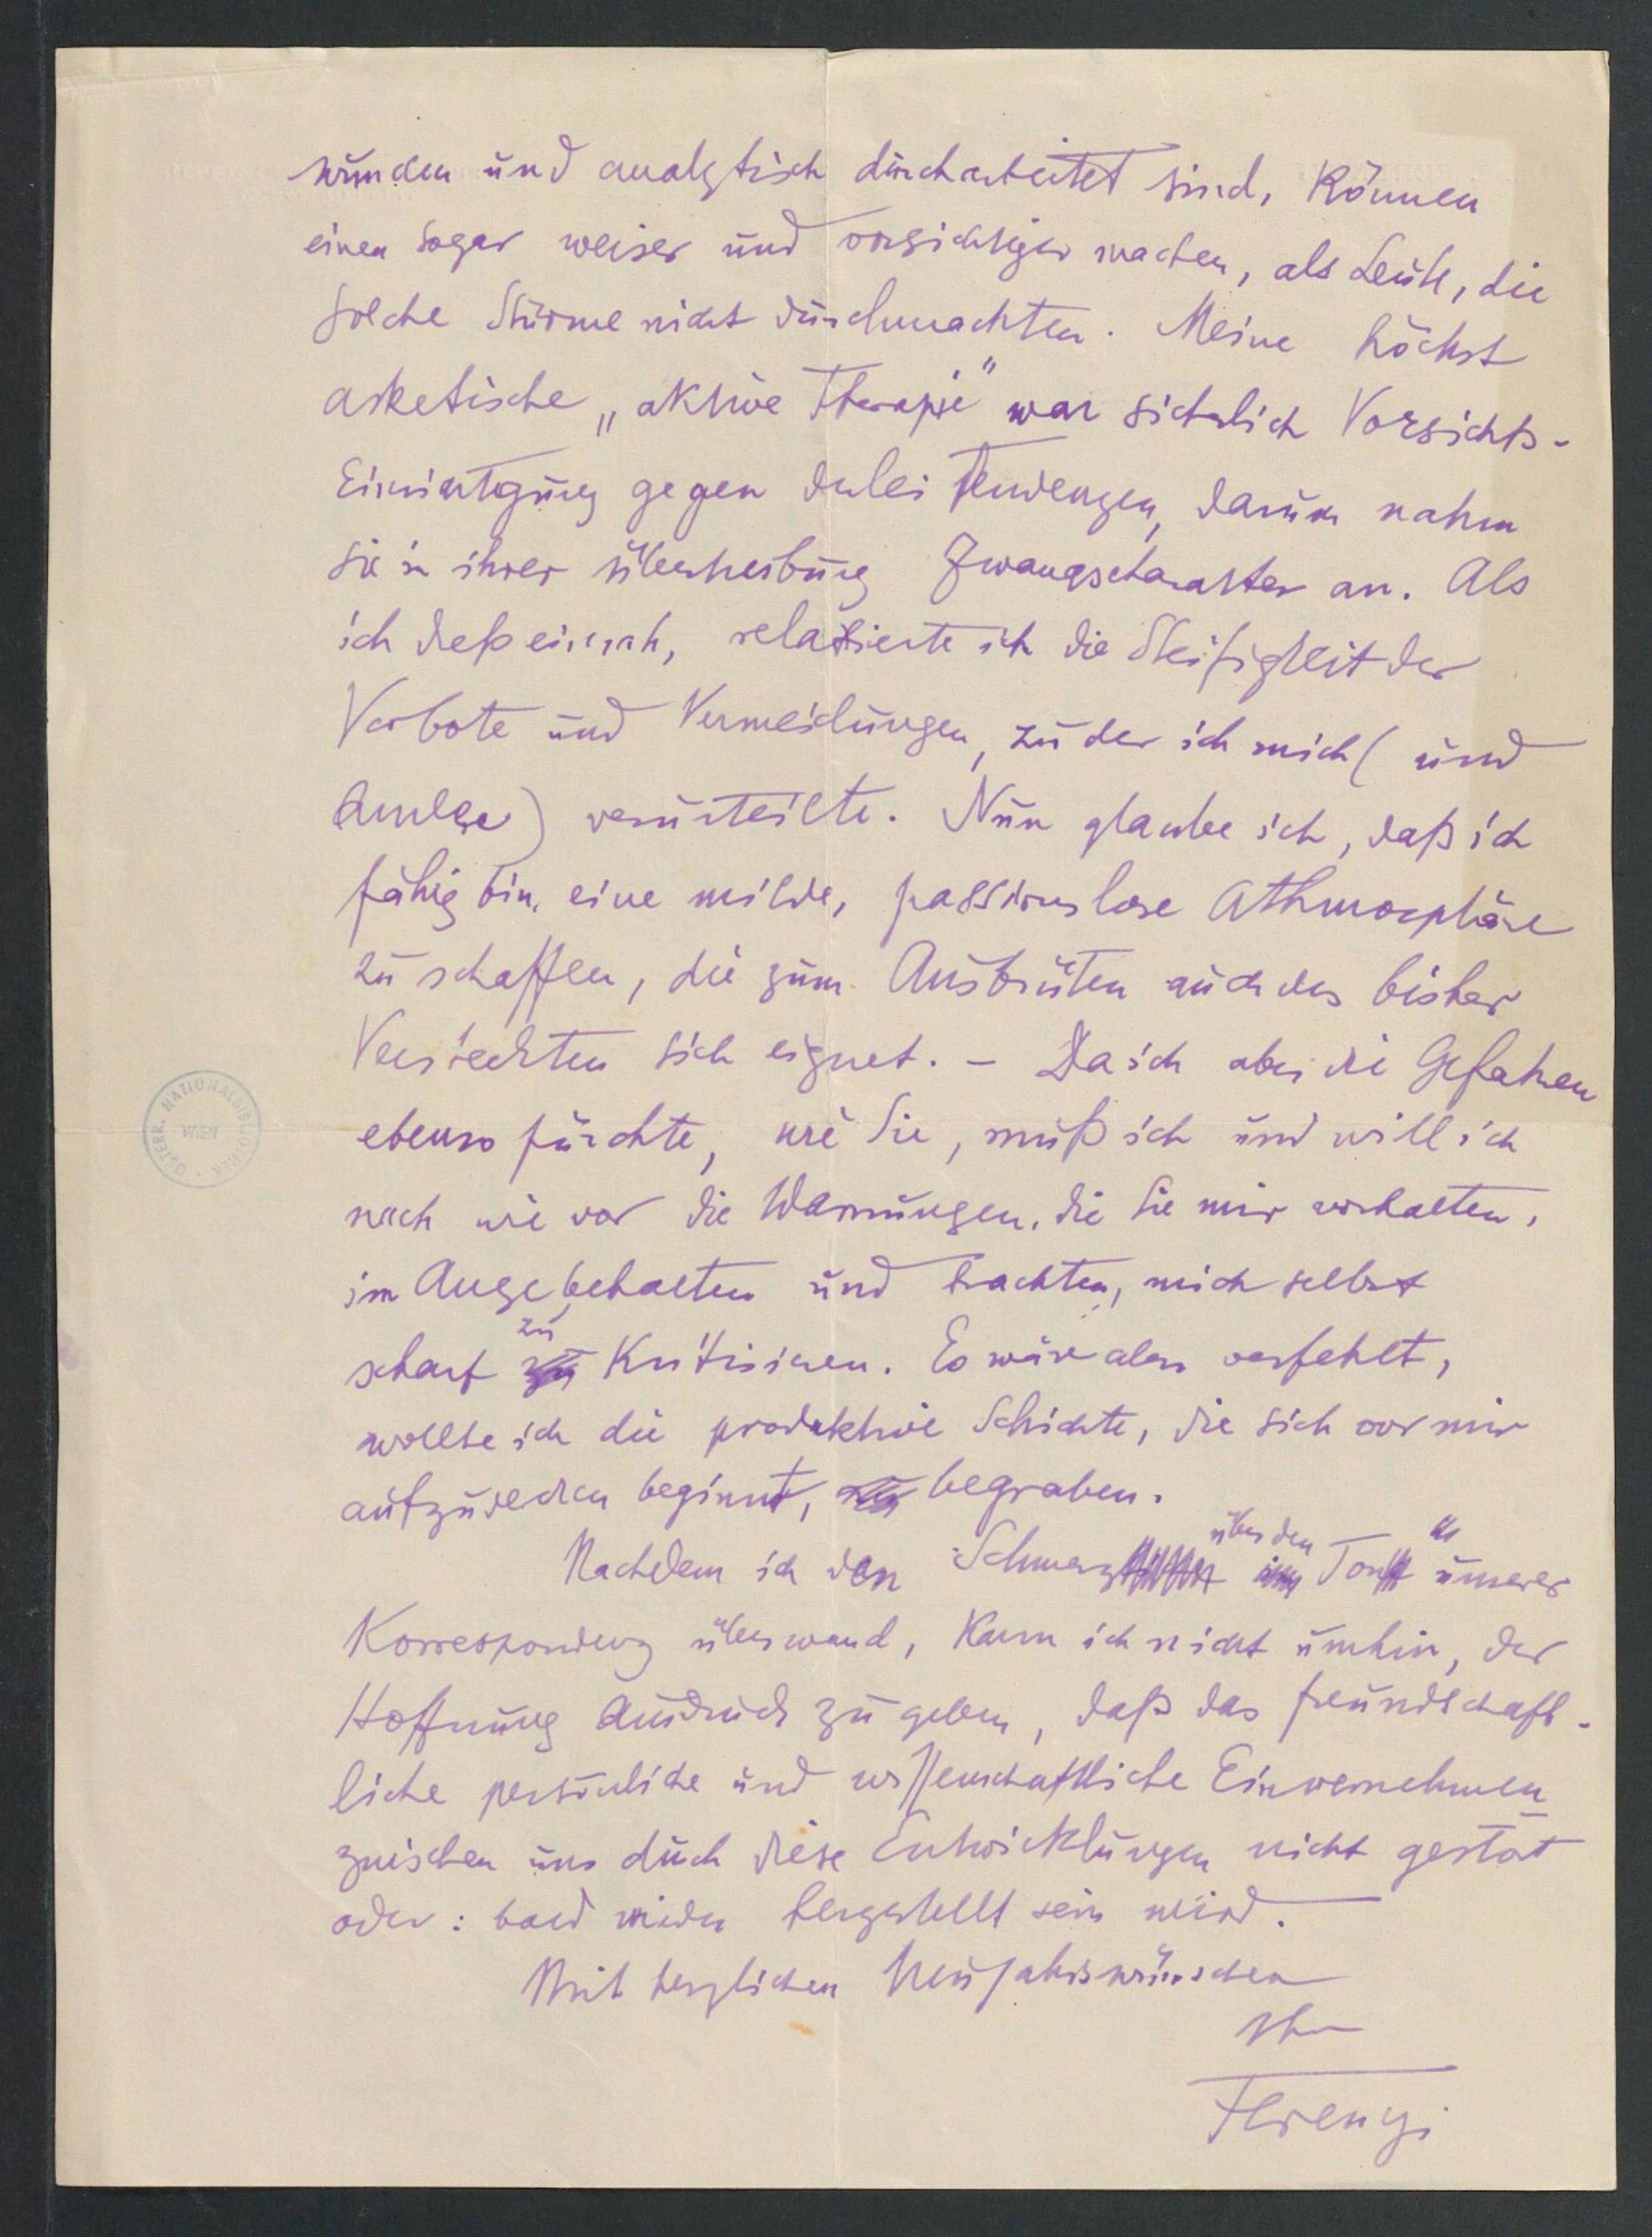 wunden und analytisch durcharbeitet sind, können
einen sogar weiser und vorsichtiger machen, als Leute, die
solche Stürme nicht durchmachten. Meine höchst
asketische „aktive Therapie" war sicherlich Vorsichts-
Einrichtung gegen derlei Tendenzen, darum nahm
sie in ihrer Übertreibung Zwangscharakter an. Als
ich dieß einsah, relaxierte ich die Steifigkeit der
Verbote und Vermeidungen, zu der ich mich (und
Andere) verurteilte. Nun glaube ich, daß ich
fähig bin, eine milde, passionslose Athmosphäre
zu schaffen, die zum Ausbrüten auch des bisher
Versteckten sich eignet. – Da ich aber die Gefahren
ebenso fürchte, wie Sie, muß ich und will ich
nach wie vor die Warnungen, die Sie mir vorhalten,
im Auge behalten und trachten, mich selbst
scharf zu kritisieren. Es wäre aber verfehlt,
wollte ich die produktive Schichte, die sich vor mir
aufzudecken beginnt, begraben.
Nachdem ich den Schmerz über den Ton unserer
Korrespondenz überwand, kann ich nicht umhin, der
Hoffnung Ausdruck zu geben, daß das freundschaft-
liche persönliche und wissenschaftliche Einvernehmen
zwischen uns durch diese Entwicklungen nicht gestört
oder: bald wieder hergestellt sein wird.
Mit herzlichen Neujahrswünschen
Ihr
Ferenczi
ÖSTERR. NATIONALBIBLIOTHEK
WIEN